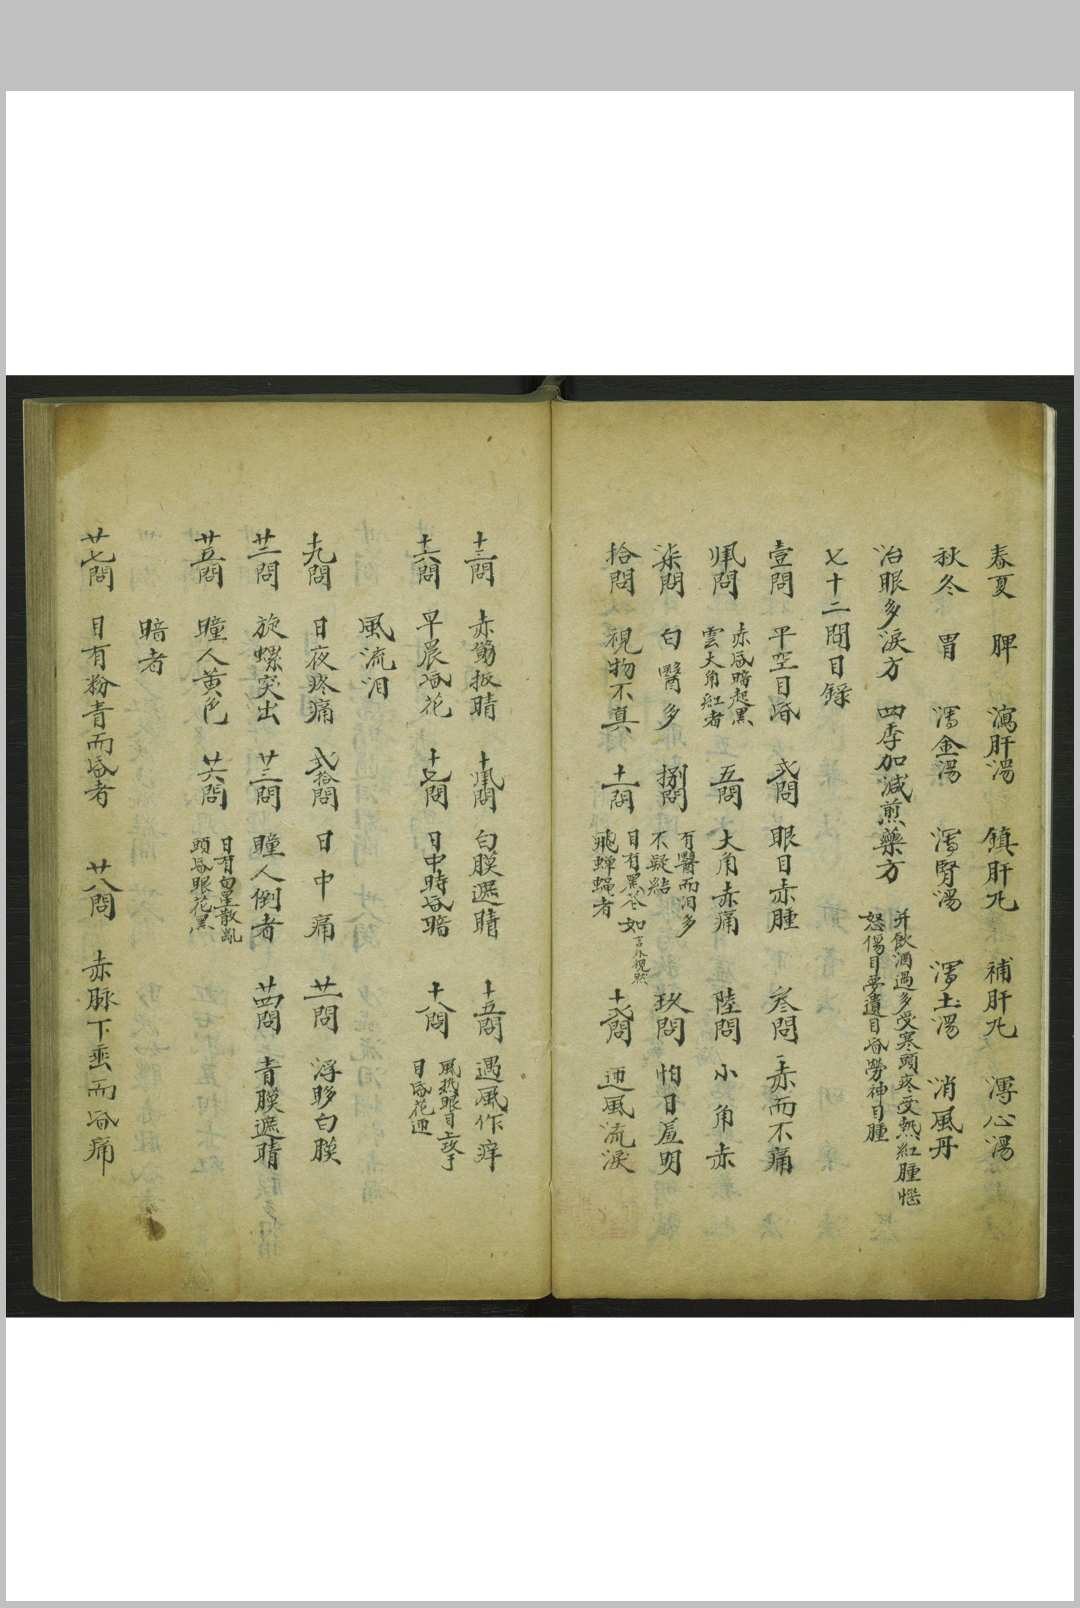 春夏 脾 瀉肝湯 鎮肝丸 補肝丸 瀉心湯
秋冬 胃 瀉金湯 瀉腎湯 瀉土湯 消風丹
治眼多淚方 四季加減煎藥方 并飲酒過多受寒頭疼受熱紅腫惱
怒傷目夢遺目昏勞神目腫
七十二問目錄
壹問 平空目昏 弍問 眼目赤腫 叁問 赤而不痛
肆問 赤昏暗起黑
雲大角紅者 五問 大角赤痛 陸問 小角赤
柒問 白醫多 捌問 有醫而泪多
不疑結 玖問 怕日羞明
拾問 視物不真 十一問 目有黑花如
飛蟬蠅者 十弍問 迎風流淚
十三問 赤筋扳睛 十肆問 白膜遮睛 十五問 遇風作痒
十六問 早晨昏花 十七問 日中時昏暗 十八問 風熱眼目
目昏花迎
風流泪
十九問 日夜疼痛 弍拾問 日中痛 廿一問 浮眵白膜
廿二問 旋螺突出 廿三問 瞳人倒者 廿四問 青膜遮睛
廿五問 瞳人黃色 廿六問 目有白星散亂
頭昏眼花黑
暗者
廿七問 目有粉青而昏者 廿八問 赤脉下垂而昏痛